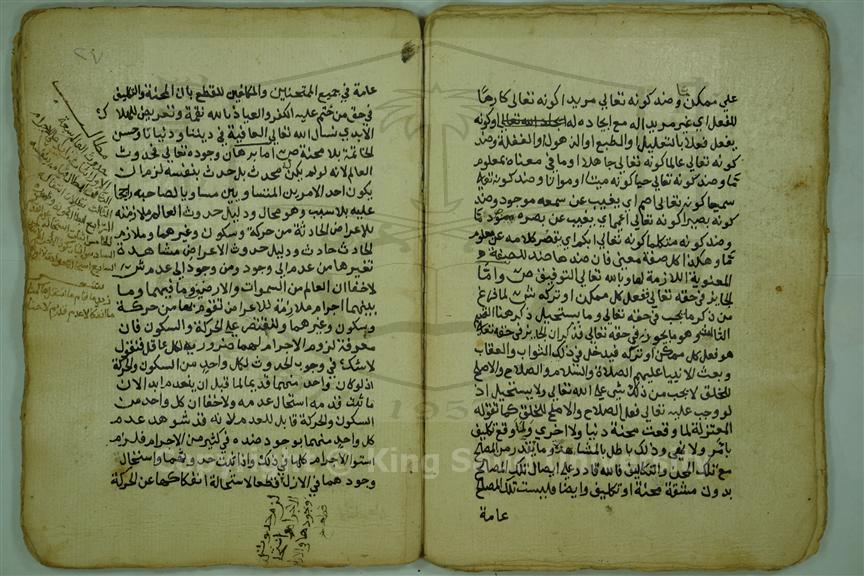 على ممكن ما وضد كونه تعالى مريدا كونه تعالى كارها
للفعل اي غير مريد اله مع ايجاده له او كونه
يفعل فعلا بالتعليل او الطبع او الذهول او الغفلة وضد
كونه تعالى عالما كونه تعالى جاهلا او ما في معناه بمعلوم
ما وضد كونه تعالى حيا كونه ميتا او مواتا وضد كونه تعالى
سميعا كونه تعالى اصم اي يغيب عن سمعه موجود وضد
كونه بصيرا كونه تعالى اعمى اي يغيب عن بصره موجود ما
وضد كونه متكلما كونه تعالى ابكم اي بتقصر كلامه عن معلوم
ما وهكذا كل صفة معنى فان ضدها ضد للصفة
المعنوية اللازمة لها وبالله تعالى التوفيق ص واما
الجايز في حقه تعالى ففعل كل ممكن او تركه ش لما فرغ
من ذكر ما يجب في حقه تعالى وما يستحيل ذكر هنا القسم
الثالث وهو ما يجوز في حقه تعالى فذكر ان الجايز في حقه تعالى
هو فعل كل ممكن او تركه فيدخل في ذلك الثواب والعقاب
وبعث الانبيا عليهم الصلاة والسلام والصلاح والاصلح
للخلق لا يجب من ذلك شي على الله تعالى ولا يستحيل اذ
لو وجب عليه تعالى فعل الصلاح والاصلح للخلق كما تقوله
المعتزلة لما وقعت محنة دنيا ولا اخرى ولما وقع تكليف
بامر ولا نهي وذلك باطل بالمشاهدة وما يقدر من المصالح
مع تلك المحن والتكاليف فالله قادر على ايصال تلك المصالح
بدون مشقة محنة او تكليف وايضا فليست تلك المصالح
عامة
٢٧
عامة في جميع الممتحنين والمكلفين للقطع بان المحنة والتكليف
في حق من ختم عليه بالكفر والعياذ بالله نقمة وتعريض للهلاك
الابدي نسأل الله تعالى العافية في ديننا ودنيانا وحسن
الخاتمة بلا محنة ص اما برهان وجوده تعالى فحدوث
العالم لانه لو لم يكن له محدث بل حدث بنفسه لزم ان
يكون احد الامرين المتساويين مساويا لصاحبه راجحا
عليه بلا سبب وهو محال ودليل حدوث العالم ملازمته
للاعراض الحادثة من حركة وسكون وغيرهما وملازم
الحادث حادث ودليل حدوث الاعراض مشاهدة
تغيرها من عدم الى وجود ومن وجود الى عدم ش
لا خفا ان العالم من السموات والارضين وما فيهما وما
بينهما اجرام ملازمة للاعراض تقوم بها من حركة
وسكون وغيرهما ولنقتصر على الحركة والسكون فان
معرفة لزوم الاجرام لهما ضرورية لكل عاقل فنقول
لا شك في وجوب الحدوث لكل واحد من السكون والحركة
اذ لو كان واحد منهما قديما لما قبل ان ينعدم ابدا لان
ما ثبت قدمه استحال عدمه ولا خفا ان كل واحد من
السكون والحركة قابل للعدم لانه قد شوهد عدم
كل واحد منهما بوجود ضده في كثير من الاجرام فلزم
استوا الاجرام كلها في ذلك واذا ثبت حدوثهما واستحال
وجودهما في الازل قطعا لاستحالة انفكاكها عن الحركة
Copyright © King Saud University